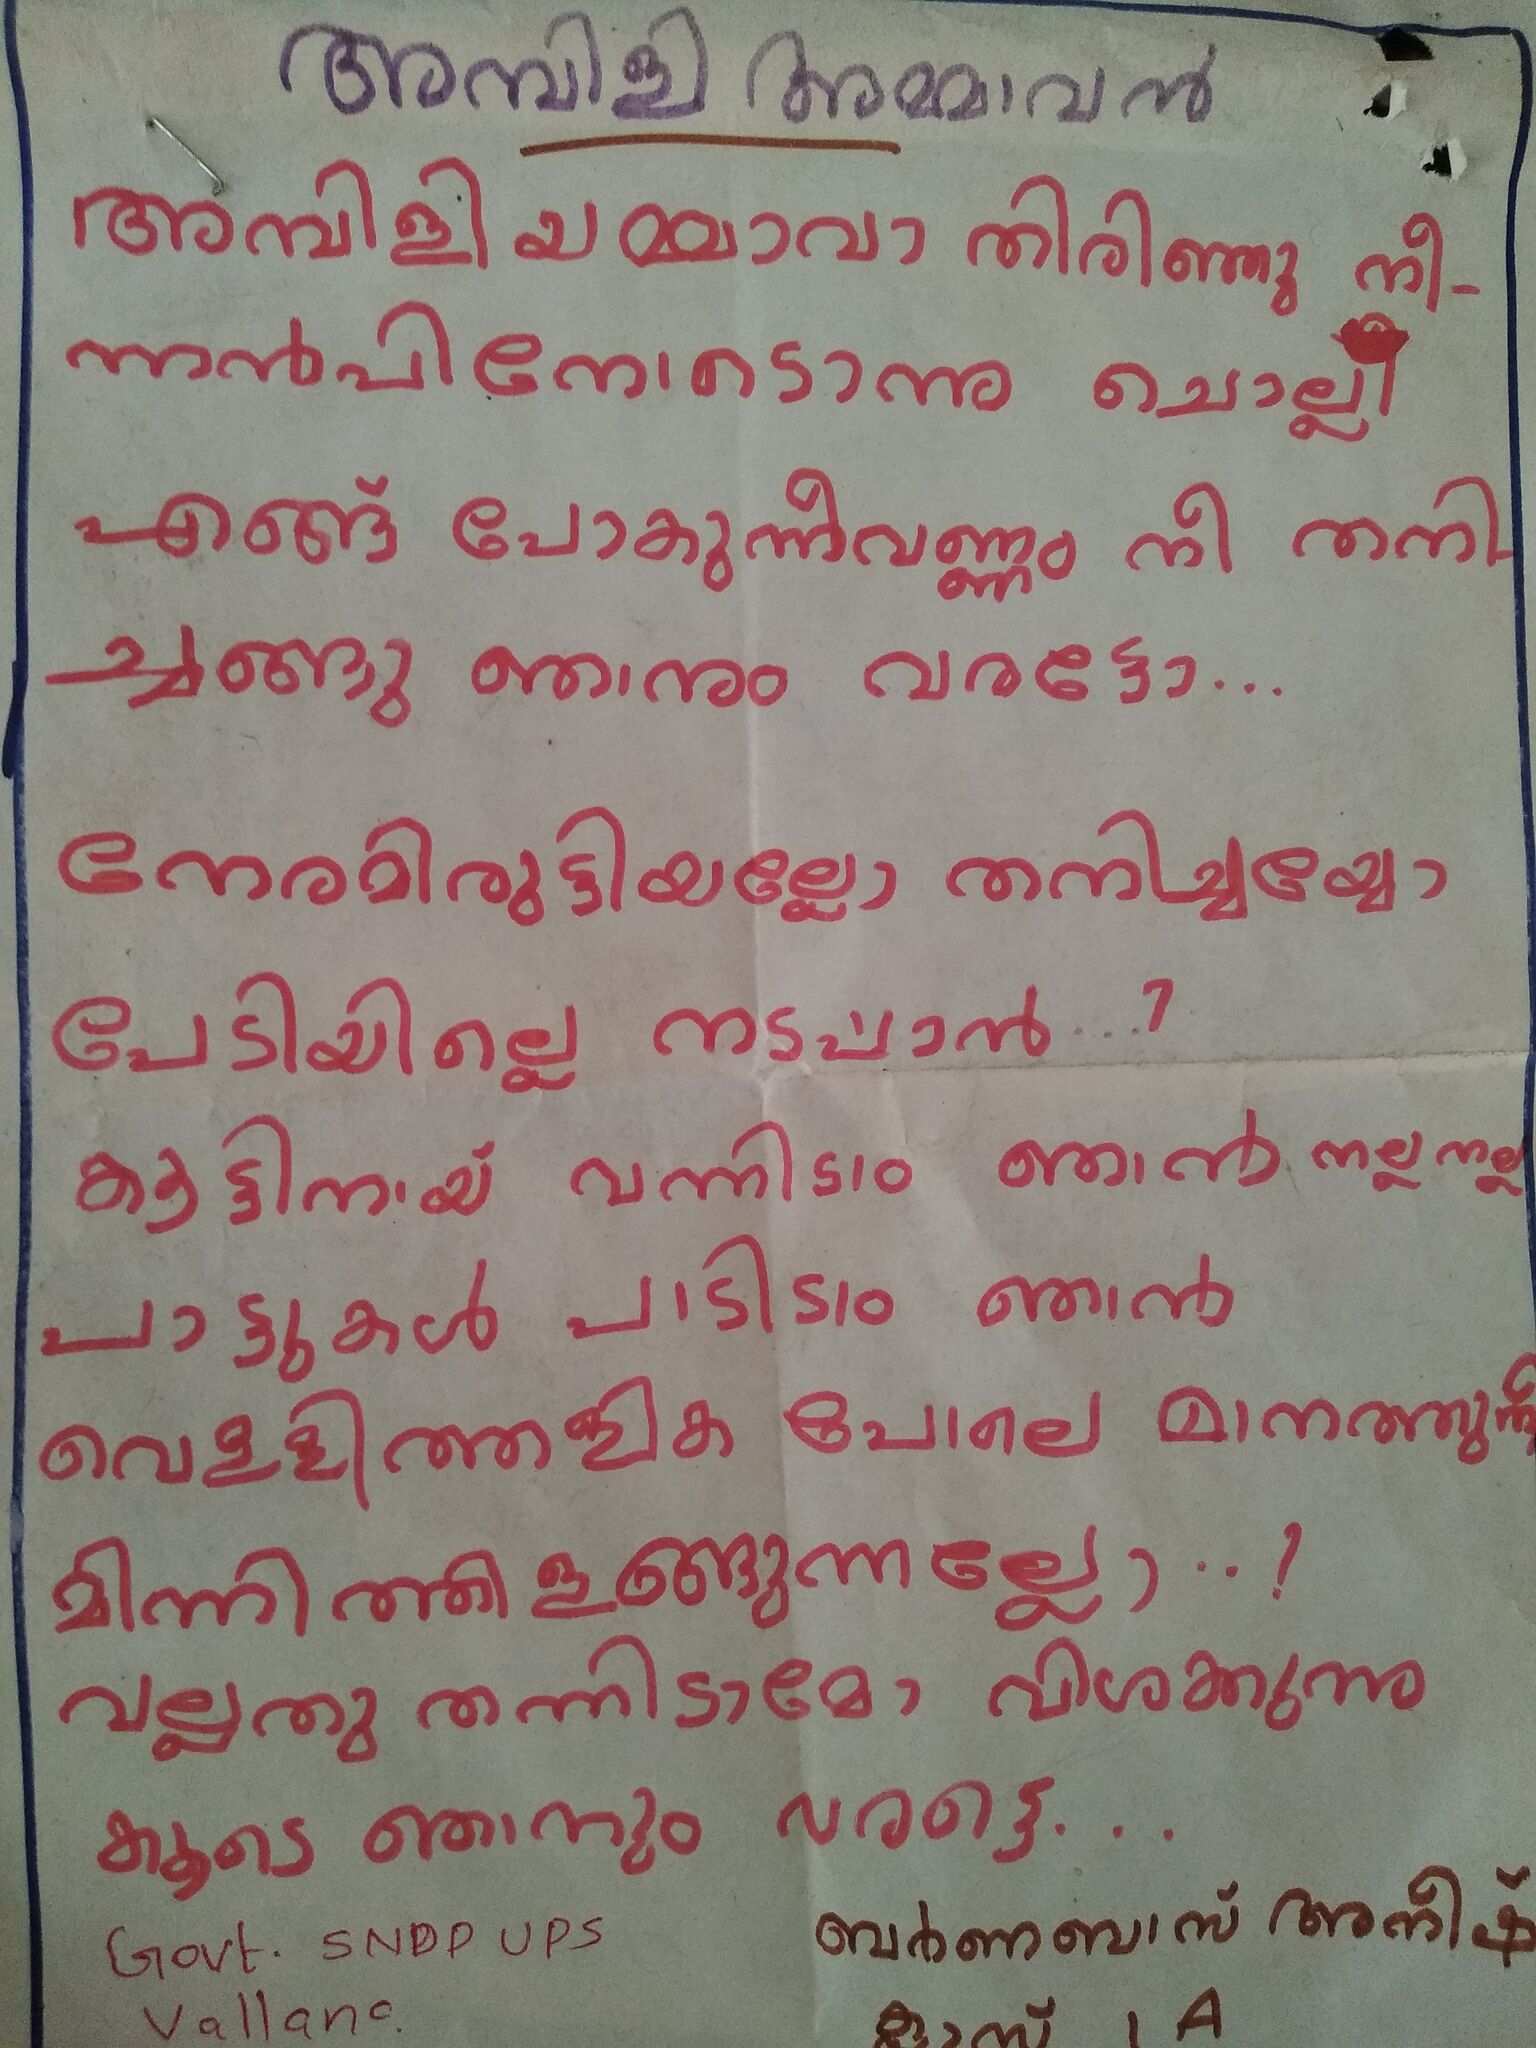 അമ്പിളി അമ്മാവൻ
അമ്പിളിയമ്മാവാ തിരിഞ്ഞു നീ-
ന്നൻപിനോടൊന്നു ചൊല്ലീ
എങ്ങ് പോകുന്നീവണ്ണം നീ തനി
ച്ചങ്ങു ഞാനും വരട്ടോ...
നേരമിരുട്ടിയല്ലോ തനിച്ചയ്യോ
പേടിയില്ലെ നടപ്പാൻ...?
കൂട്ടിനായ് വന്നിടാം ഞാൻ നല്ല നല്ല
പാട്ടുകൾ പാടിടാം ഞാൻ
വെള്ളിത്തളിക പോലെ മാനത്തുന്നീ
മിന്നിത്തിളങ്ങുന്നല്ലോ..?
വല്ലതു തന്നിടാമോ വിശക്കുന്നു
കൂടെ ഞാനും വരട്ടെ...
Govt. SNDP UPS
Vallana.
ബർണബാസ് അനീഷ്
ക്ലാസ് 1 A